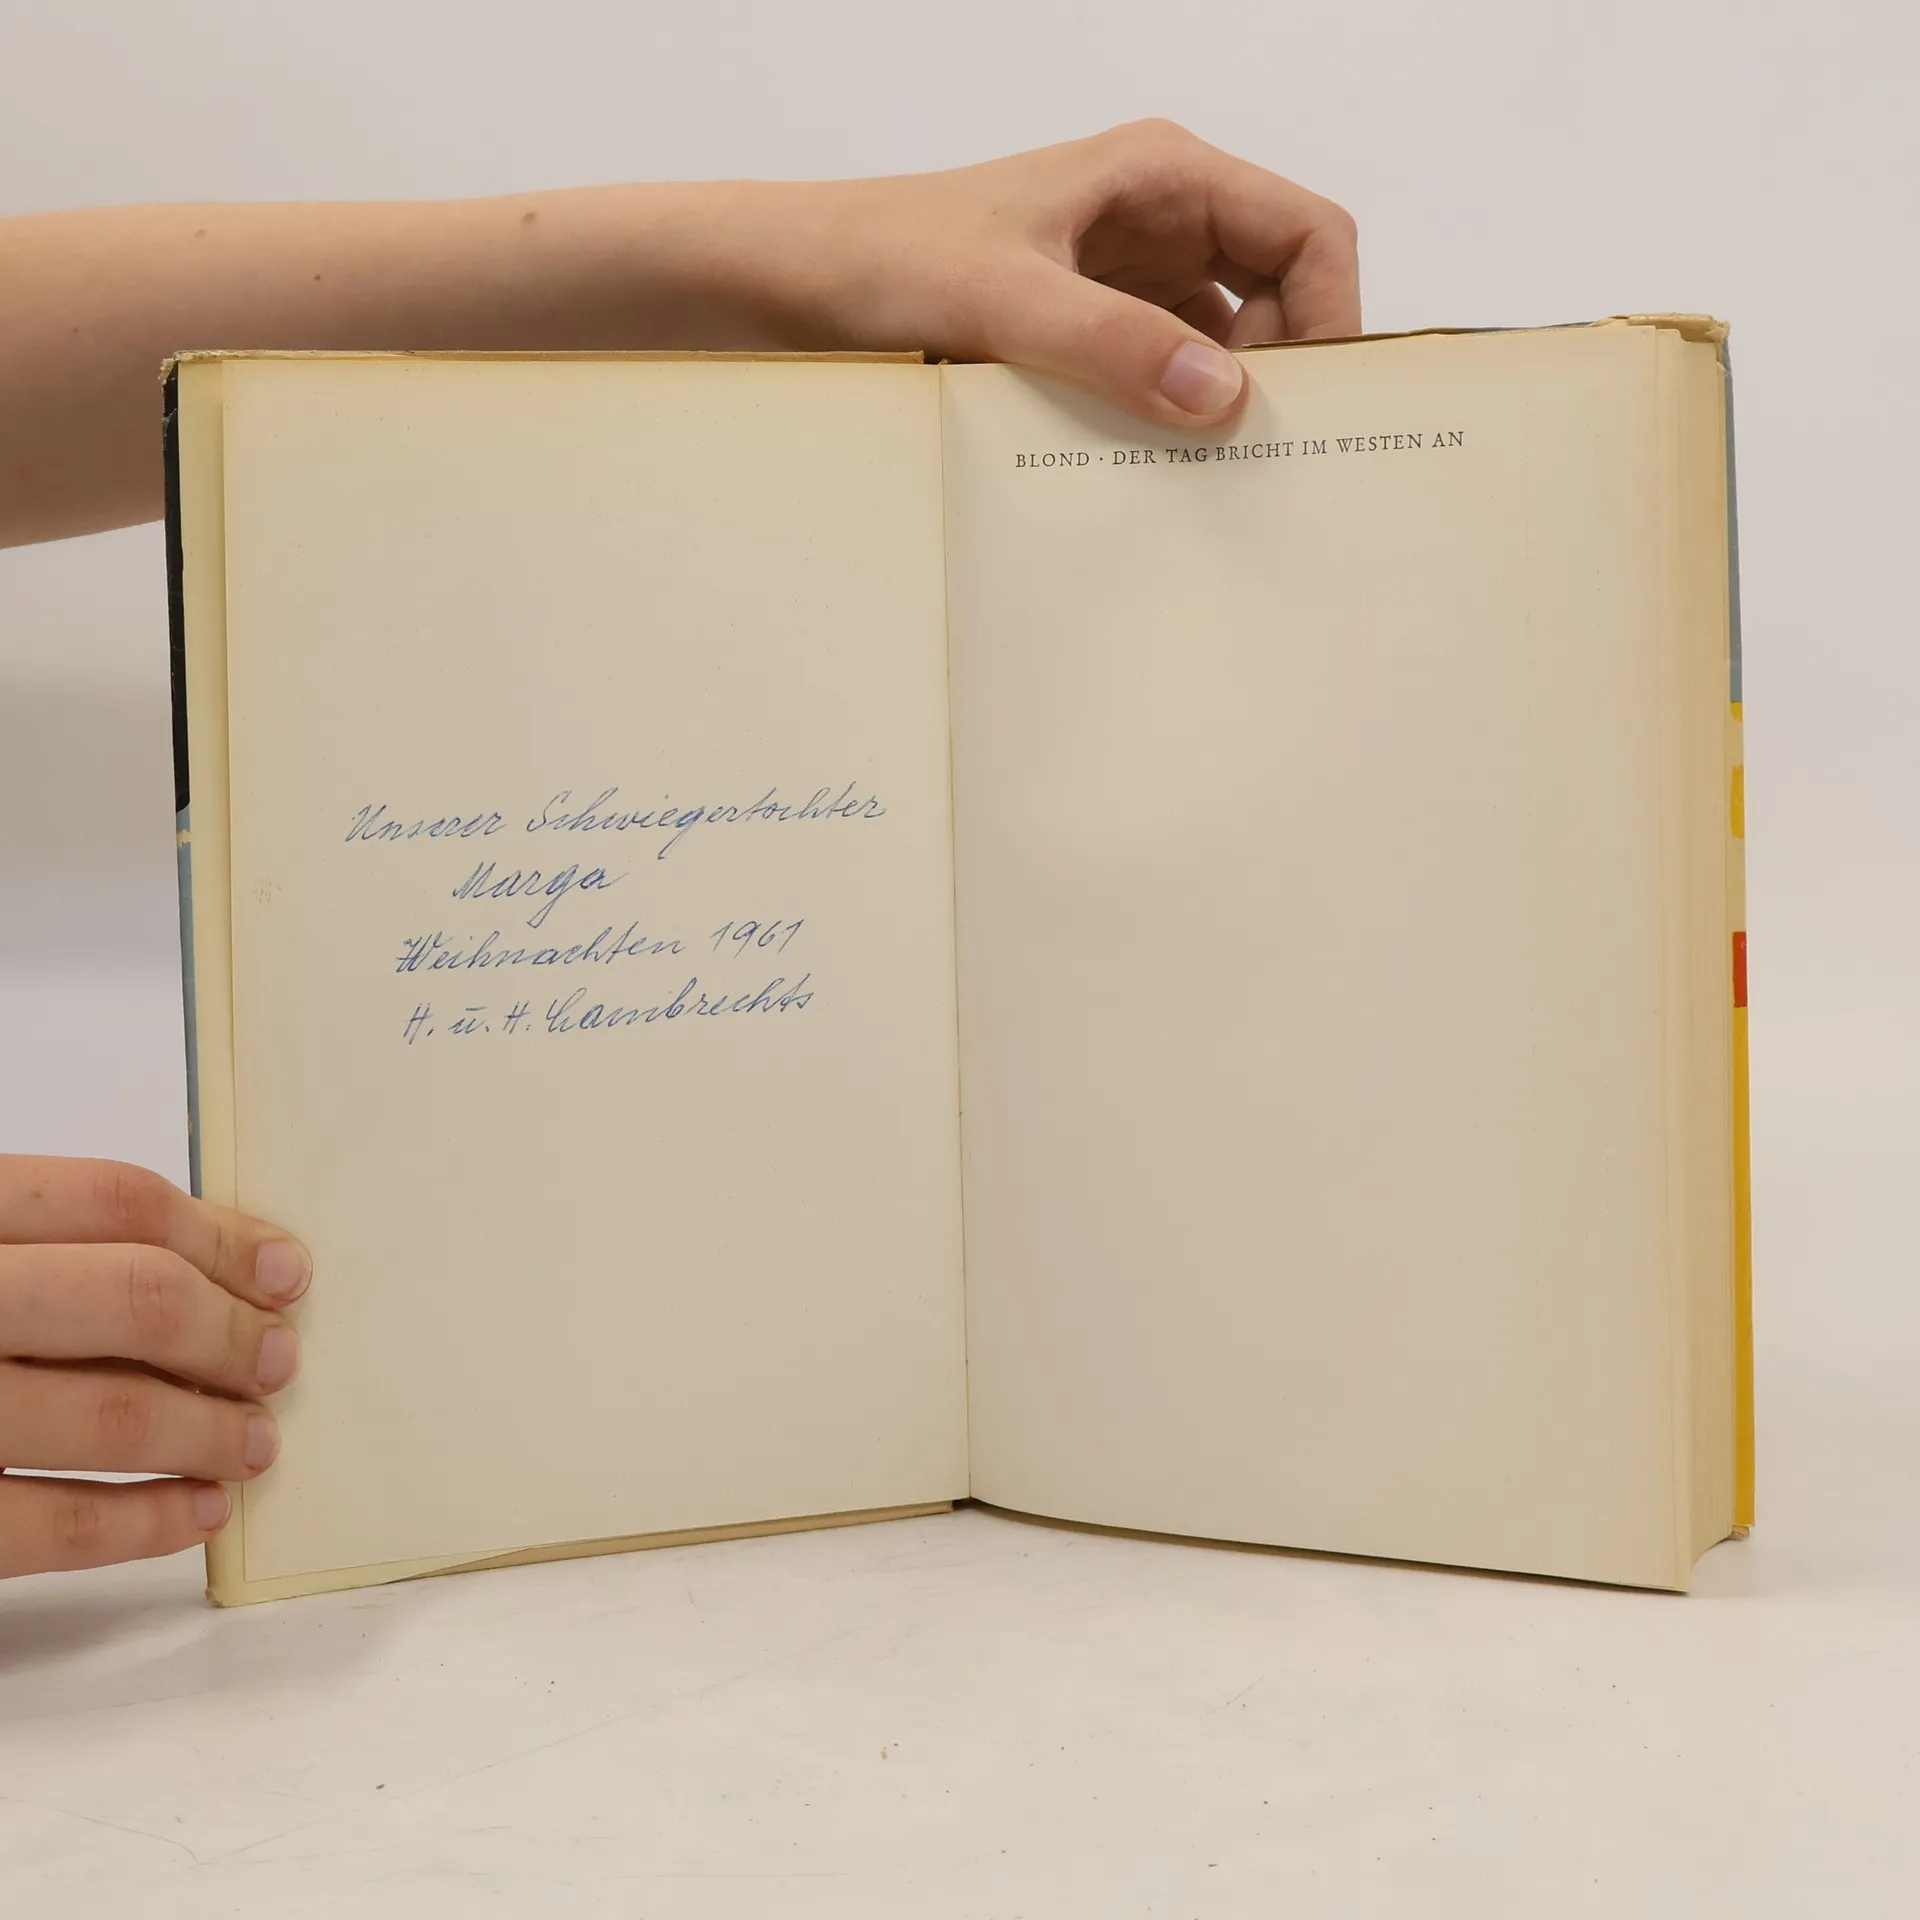 Unserer Schwiegertochter
Marga
Weihnachten 1961
H. u. H. Lambrechts
BLOND · DER TAG BRICHT IM WESTEN AN